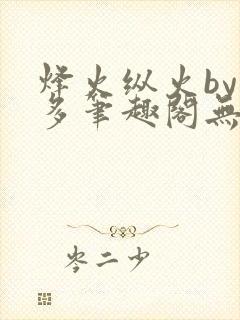 烽火纵火by
多笔趣阁無
岑二少